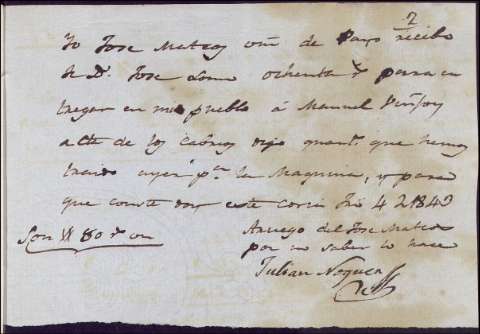 2
Yo Jose Mateos de Payo recibo
de D. Jose ochenta r para en
tregar en mi pueblo á Manuel
de los Cabrios que hemos
traido ayer pa la Maquina, y para
que conste doy este 4 2 1840
Son 80 r on
Arruego del Jose Mateos
por no saber lo hace
Julian Noguera